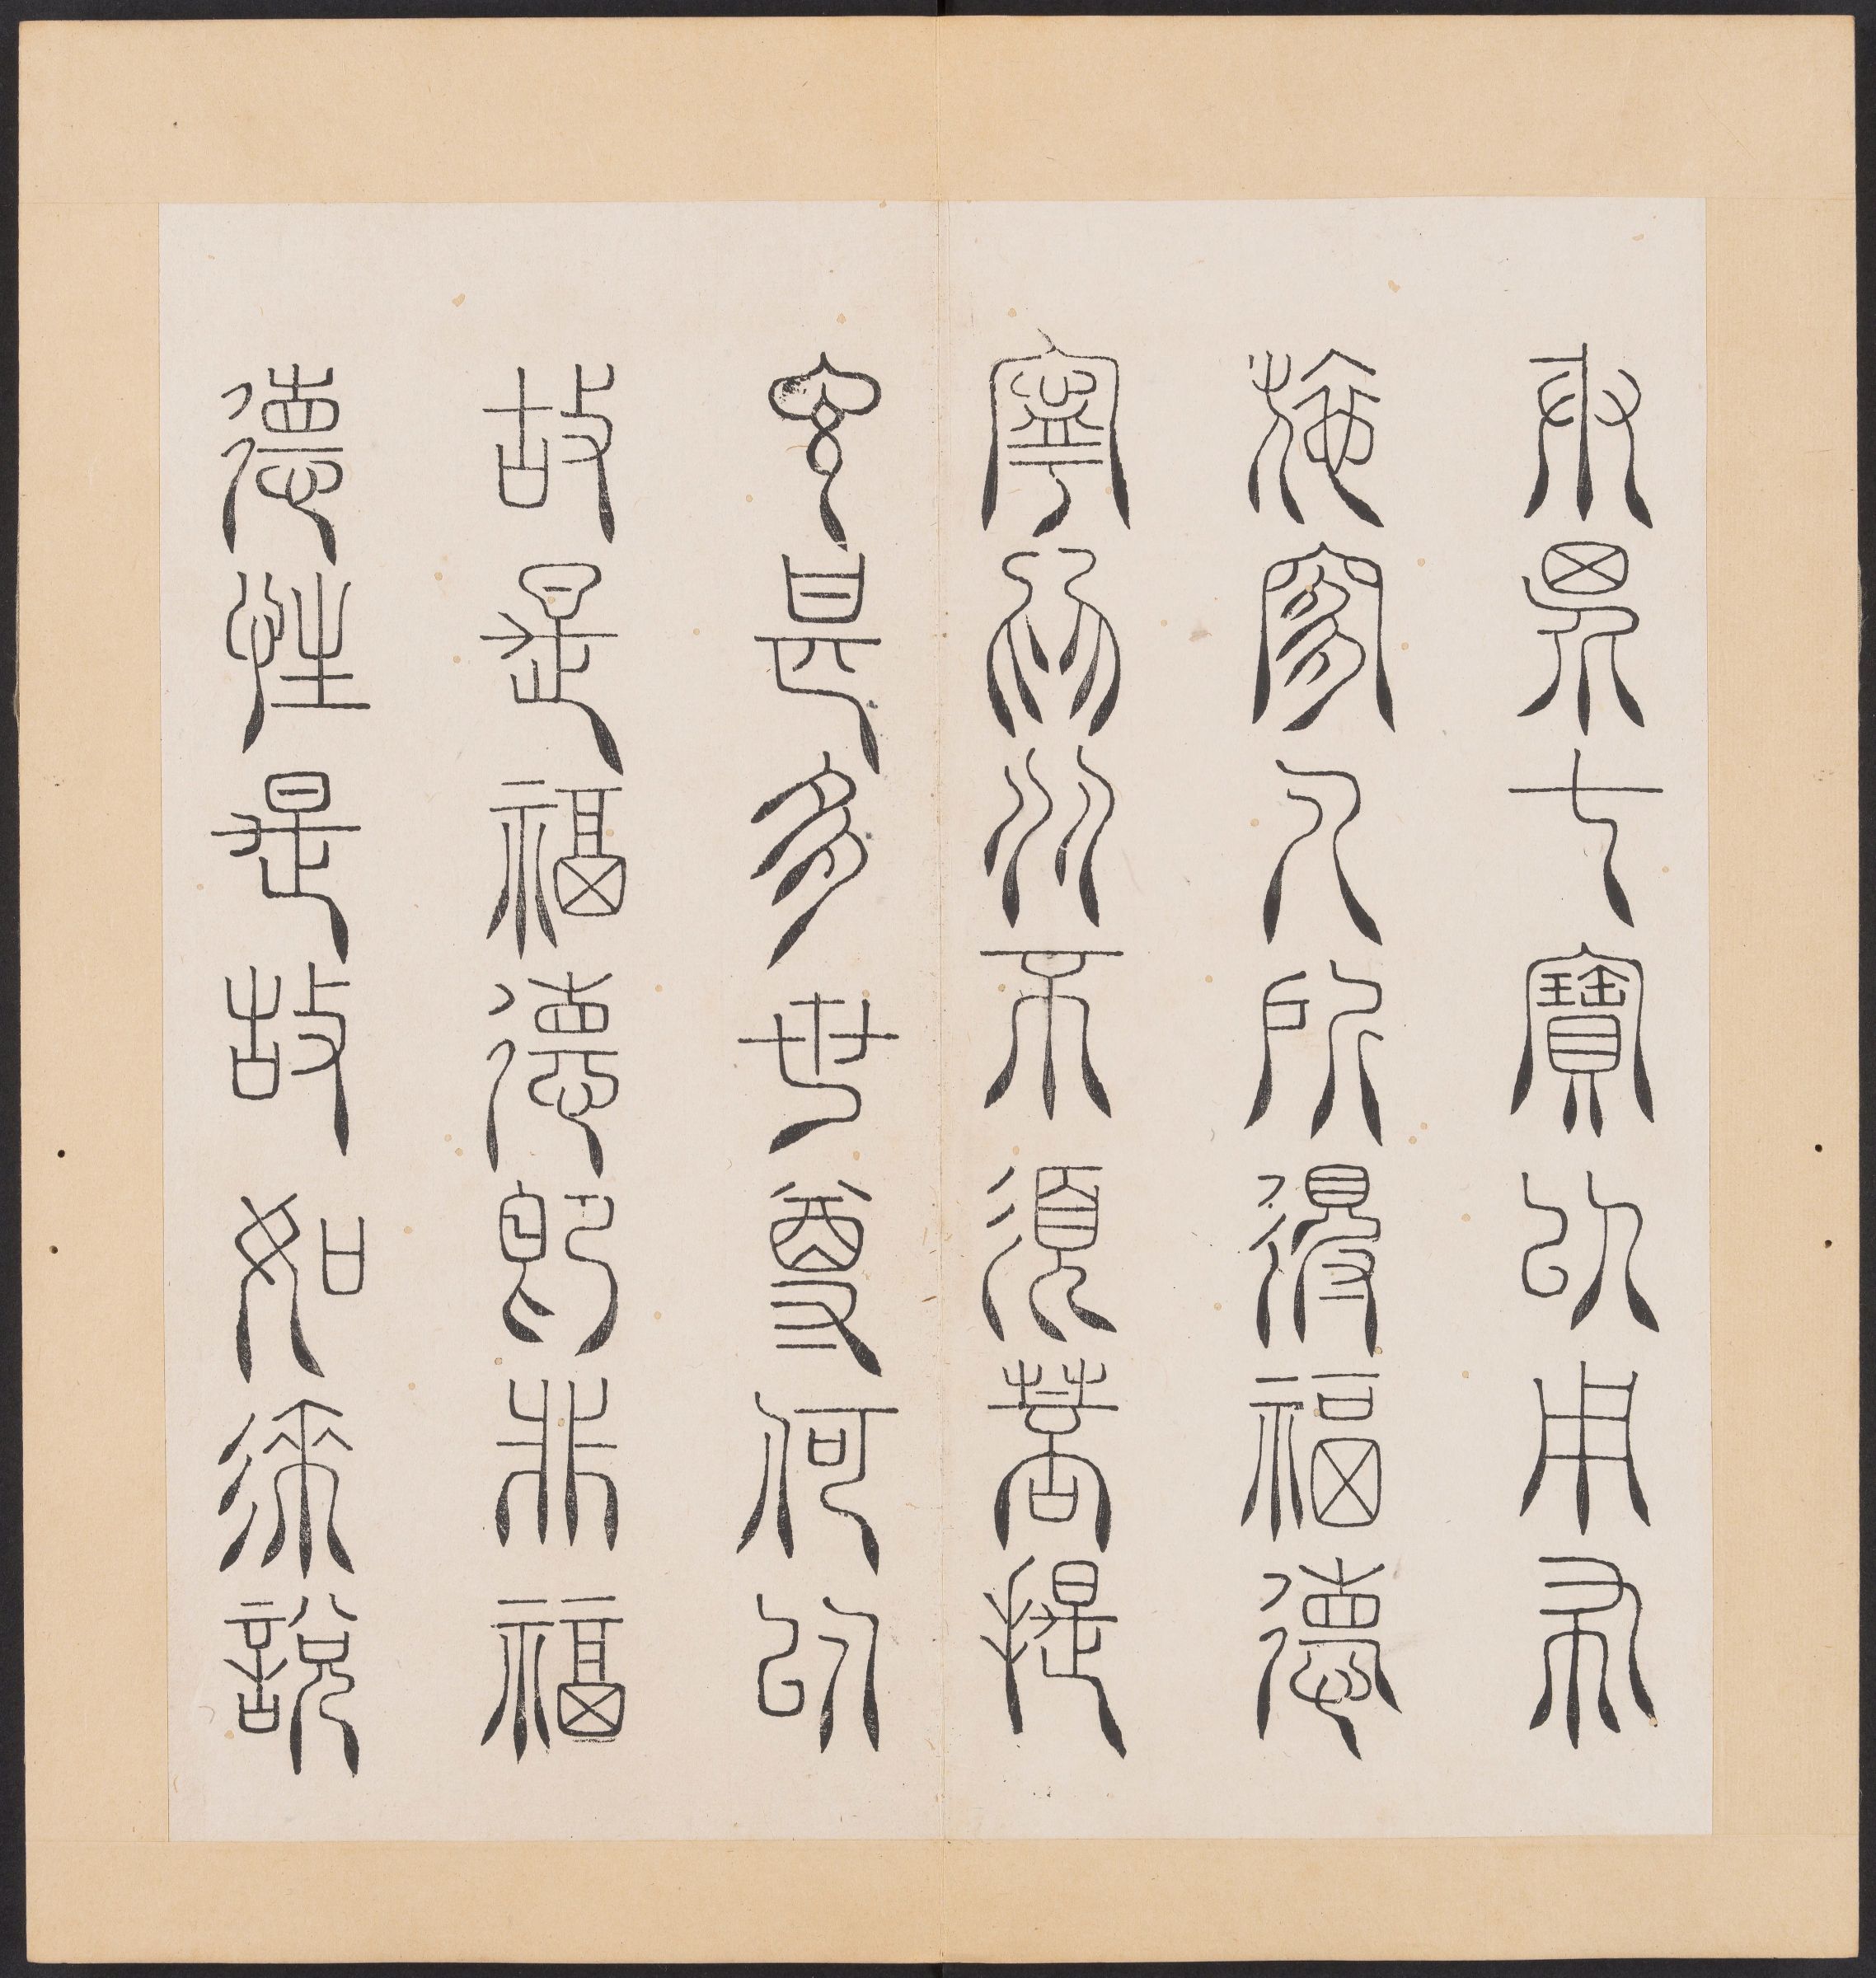 世界七寶以用布
施是人所得福德
寧為多不須菩提
言甚多世尊何以
故是福德即非福
德性是故如來說